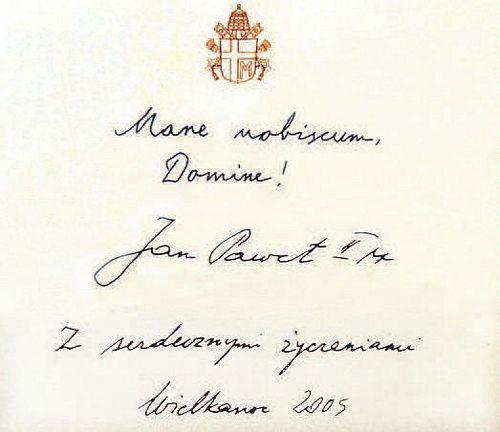 M
Mane nobiscum,
Domine!
Jan Paweł II
Z serdecznymi życzeniami
Wielkanoc 2005